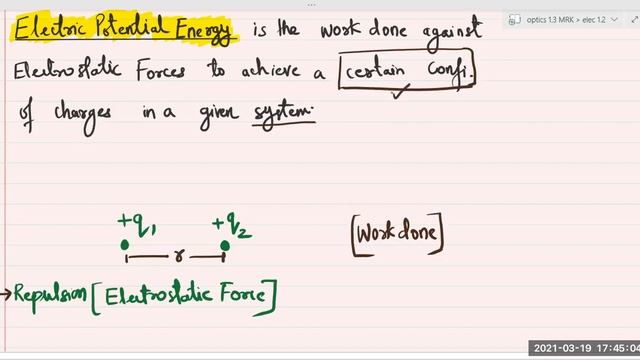 optics 1.3 MRK > elec 1.2
Electric Potential Energy is the work done against
Electrostatic Forces to achieve a certain confi.
of charges in a given system.
+q1 +q2
r
[Work done]
→ Repulsion [Electrostatic Force]
2021-03-19 17:45:04